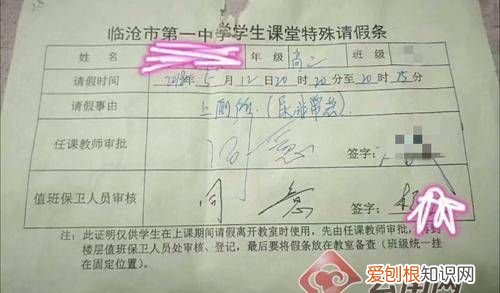 临沧市第一中学学生课堂特殊请假条
姓名 年级 高二 班级
请假时间 2018年5月12日20时20分至20时25分
请假事由 上厕所(尿非常急)
任课教师审批 同意 签字:
值班保卫人员审核 同意 签字:
注:此证明仅供学生在上课期间请假离开教室时使用,先由任课教师审批,再到
楼层值班保卫人员处审核、登记,最后要将假条放在教室备查(班级统一挂
在固定位置)。
云南网
爱刨根知识网